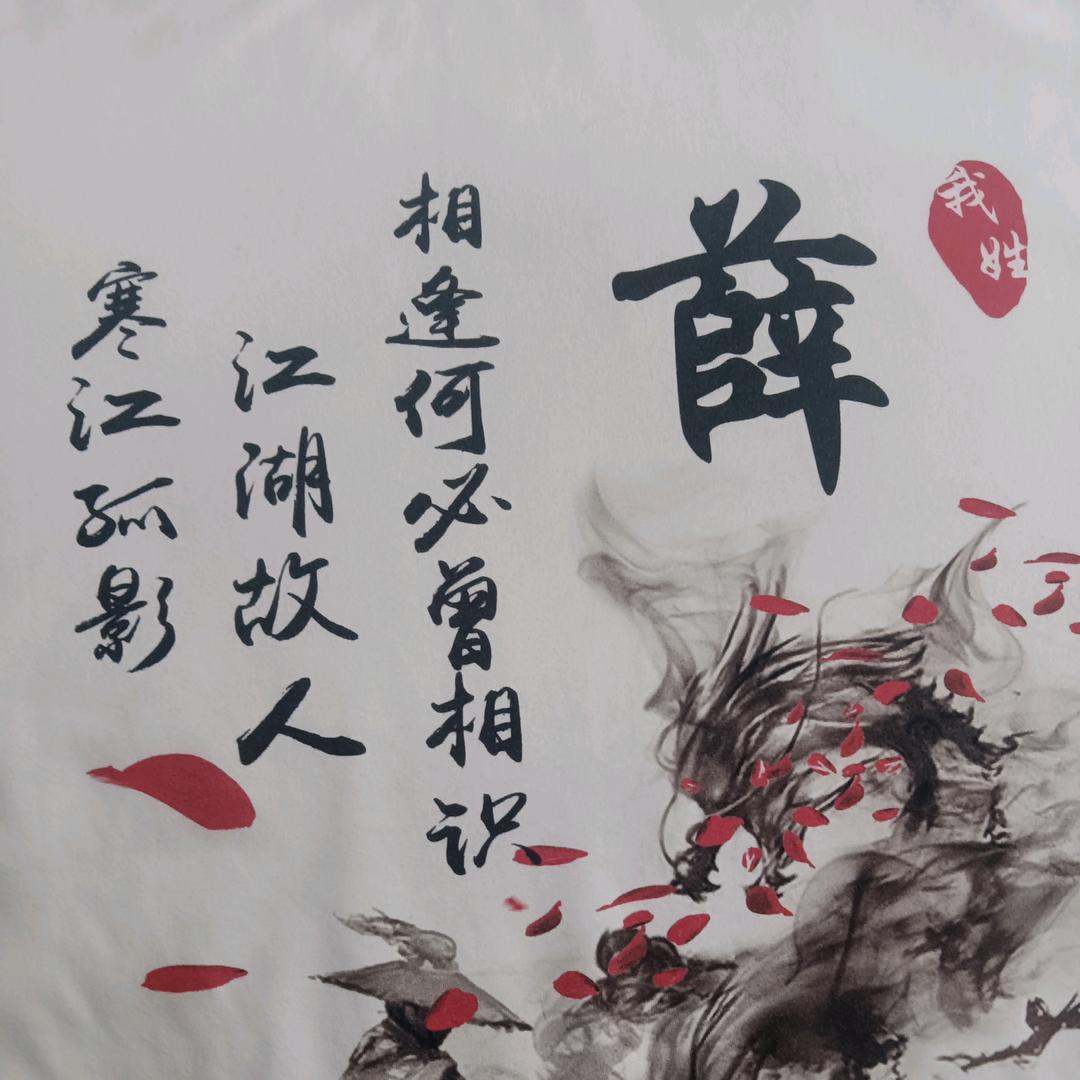 我姓
薛
相逢何必曾相识
江湖故人
寒江孤影